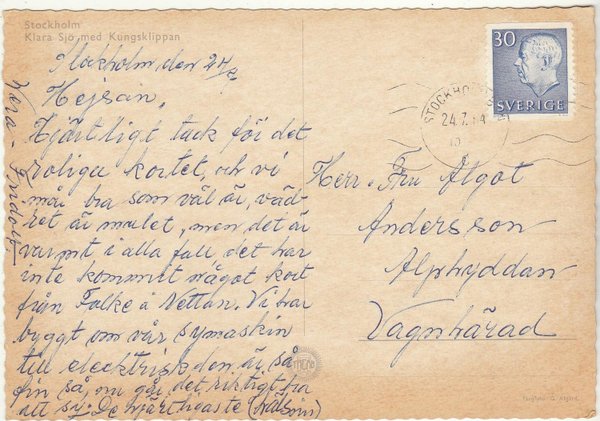 Stockholm
Klara Sjö med Kungsklippan
Stockholm, den 24/7
Hejsan,
Hjärtligt tack för det
roliga kortet, och vi
mår bra som väl är, väd-
ret är mulet, men det är
varmt i alla fall det har
inte kommit något kort
från Folke o Nettan. Vi har
byggt om vår symaskin
till elecktrisk den är så
fin så, nu går det riktigt bra
att sy. De hjärtligaste (hälsnin)
Vera - Fridolf
30
SVERIGE
STOCKHOLM
24.7.64
Herr o Fru Algot
Andersson
Alphyddan
Vagnhärad